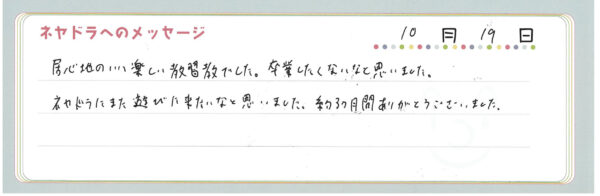 ネヤドラへのメッセージ
10月 19日
居心地のいい楽しい教習教でした。卒業したくないなと思いました。
ネヤドラにまた遊びに来たいなと思いました。約3ヶ月間ありがとうございました。